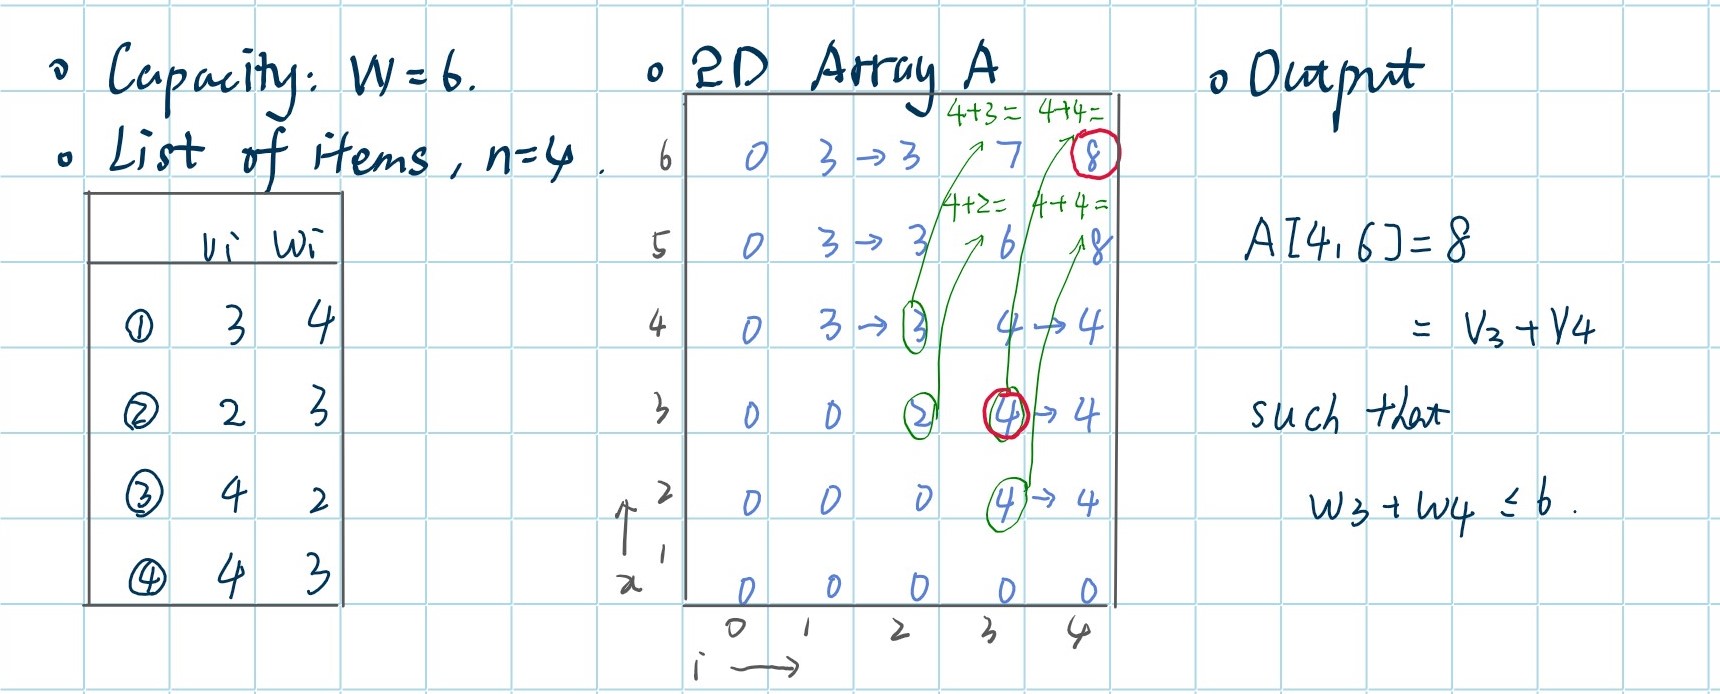 ◦ Capacity: W=6.
◦ List of items, n=4.
vi wi
① 3 4
② 2 3
③ 4 2
④ 4 3
◦ 2D Array A
4+3= 4+4=
6 0 3 → 3 7 8
4+2= 4+4=
5 0 3 → 3 6 8
4 0 3 → 3 4 → 4
3 0 0 2 4 → 4
2 0 0 0 4 → 4
1
x 0 0 0 0 0
0 1 2 3 4
i →
◦ Output
A[4,6]=8
= V3+V4
such that
W3+W4 ≤ 6.